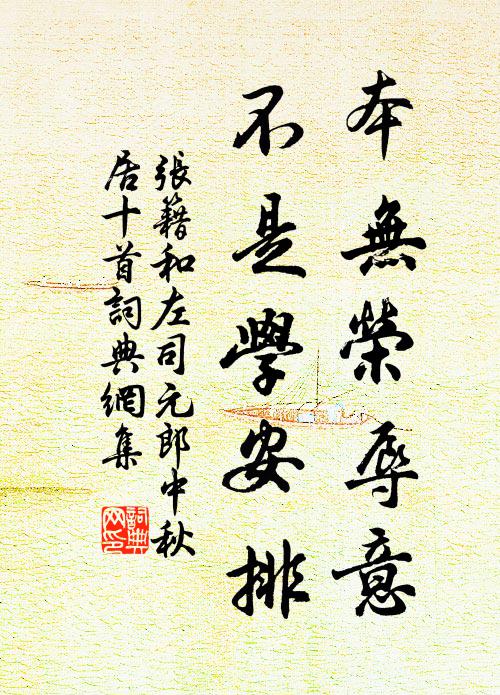 本無榮辱意
不是學安排
張籍和左司元郎中秋
居十首詞典網集
詞典
网印